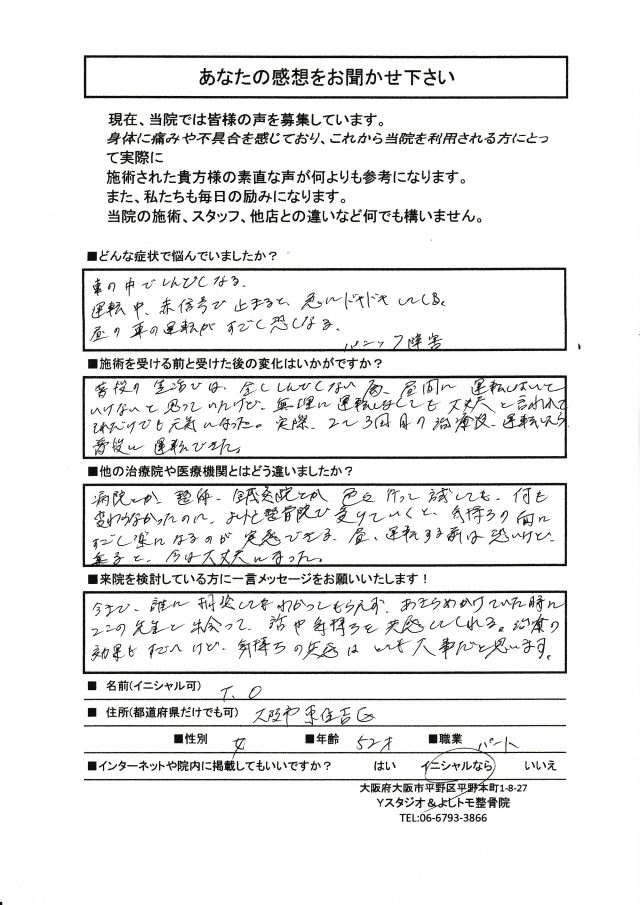 あなたの感想をお聞かせ下さい
現在、当院では皆様の声を募集しています。
身体に痛みや不具合を感じており、これから当院を利用される方にとっ
て実際に
施術された貴方様の素直な声が何よりも参考になります。
また、私たちも毎日の励みになります。
当院の施術、スタッフ、他店との違いなど何でも構いません。
■どんな症状で悩んでいましたか？
車の中でしんどくなる。
運転中、赤信号で止まると、急にドキドキしてくる。
昼の車の運転がすごく恐くなる。
パニック障害
■施術を受ける前と受けた後の変化はいかがですか？
普段の生活では、全くしんどくない為、昼間に運転しないと
いけないと思っていたけど、無理に運転しなくても大丈夫と言われて
それだけでも元気になった。実際、2〜3回目の治療後、運転
普段に運転できた。
■他の治療院や医療機関とはどう違いましたか？
病院とか整体、鍼灸院とか色々行って試しても、何も
変わらなかったのに、よしとも整骨院で受けていくと、気持ちの面に
すごく楽になるのが実感できる。昼、運転する前は恐いけど、
乗ると、今は大丈夫になった。
■来院を検討している方に一言メッセージをお願いいたします！
今まで、誰に相談してもわかってもらえず、あきらめかけていた時に
ここの先生と出会って、話や気持ちを共感してくれる。治療の
効果もすごいけど、気持ちの共感はとても大事だと思います。
■ 名前(イニシャル可) T.O
■ 住所(都道府県だけでも可) 大阪市東住吉区
■性別 女 ■年齢 52才 ■職業 パート
■インターネットや院内に掲載してもいいですか？ はい イニシャルなら いいえ
大阪府大阪市平野区平野本町1-8-27
Yスタジオ＆よしトモ整骨院
TEL:06-6793-3866